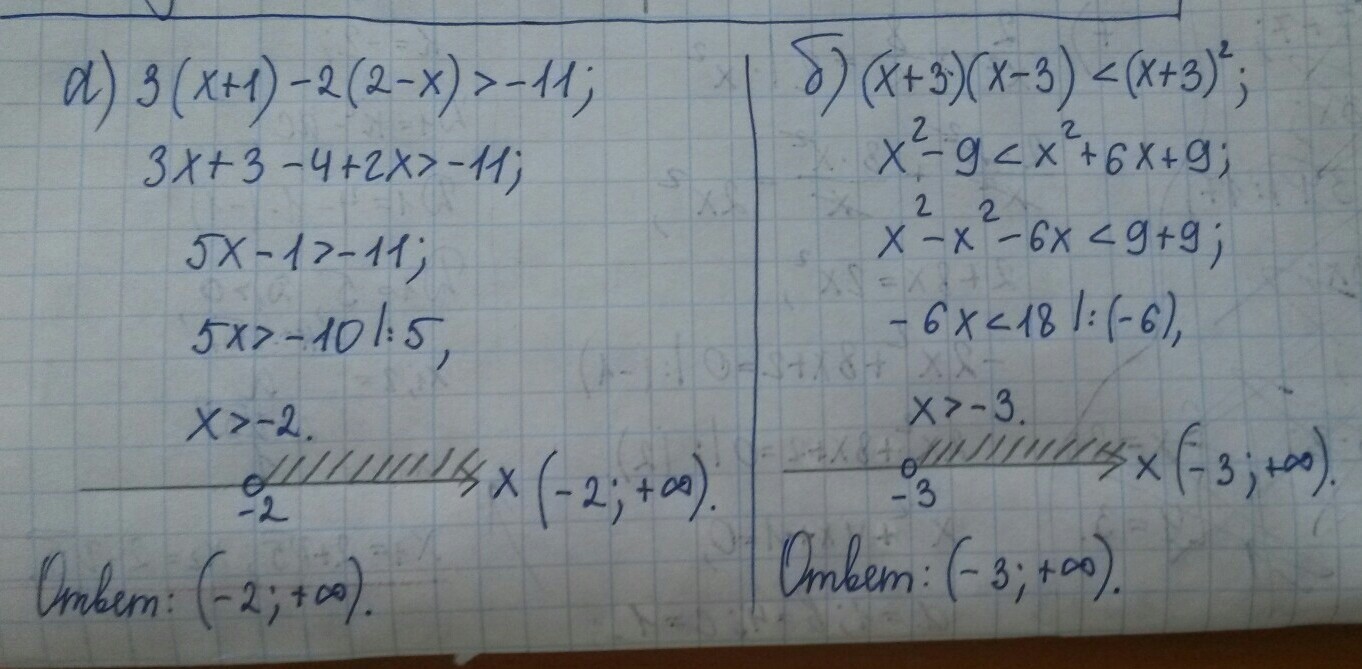 а) 3(x+1)-2(2-x)>-11;
3x+3-4+2x>-11;
5x-1>-11;
5x>-10 |:5,
x>-2.
-2
x (-2; +∞).
Ответ: (-2; +∞).
б) (x+3)(x-3)<(x+3)²;
x²-9<x²+6x+9;
x²-x²-6x<9+9;
-6x<18 |:(-6),
x>-3.
-3
x (-3; +∞).
Ответ: (-3; +∞).